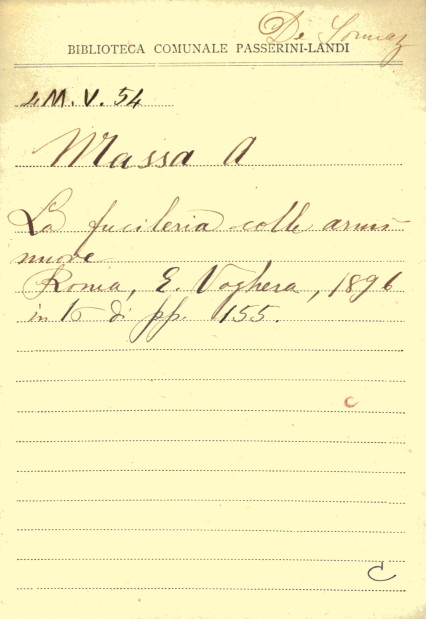 De Sonnaz
BIBLIOTECA COMUNALE PASSERINI-LANDI
4 M. V. 54
Massa A
La fucileria colle armi
nuove
Roma, E. Voghera, 1896
in 16 di pp. 155.
c
C